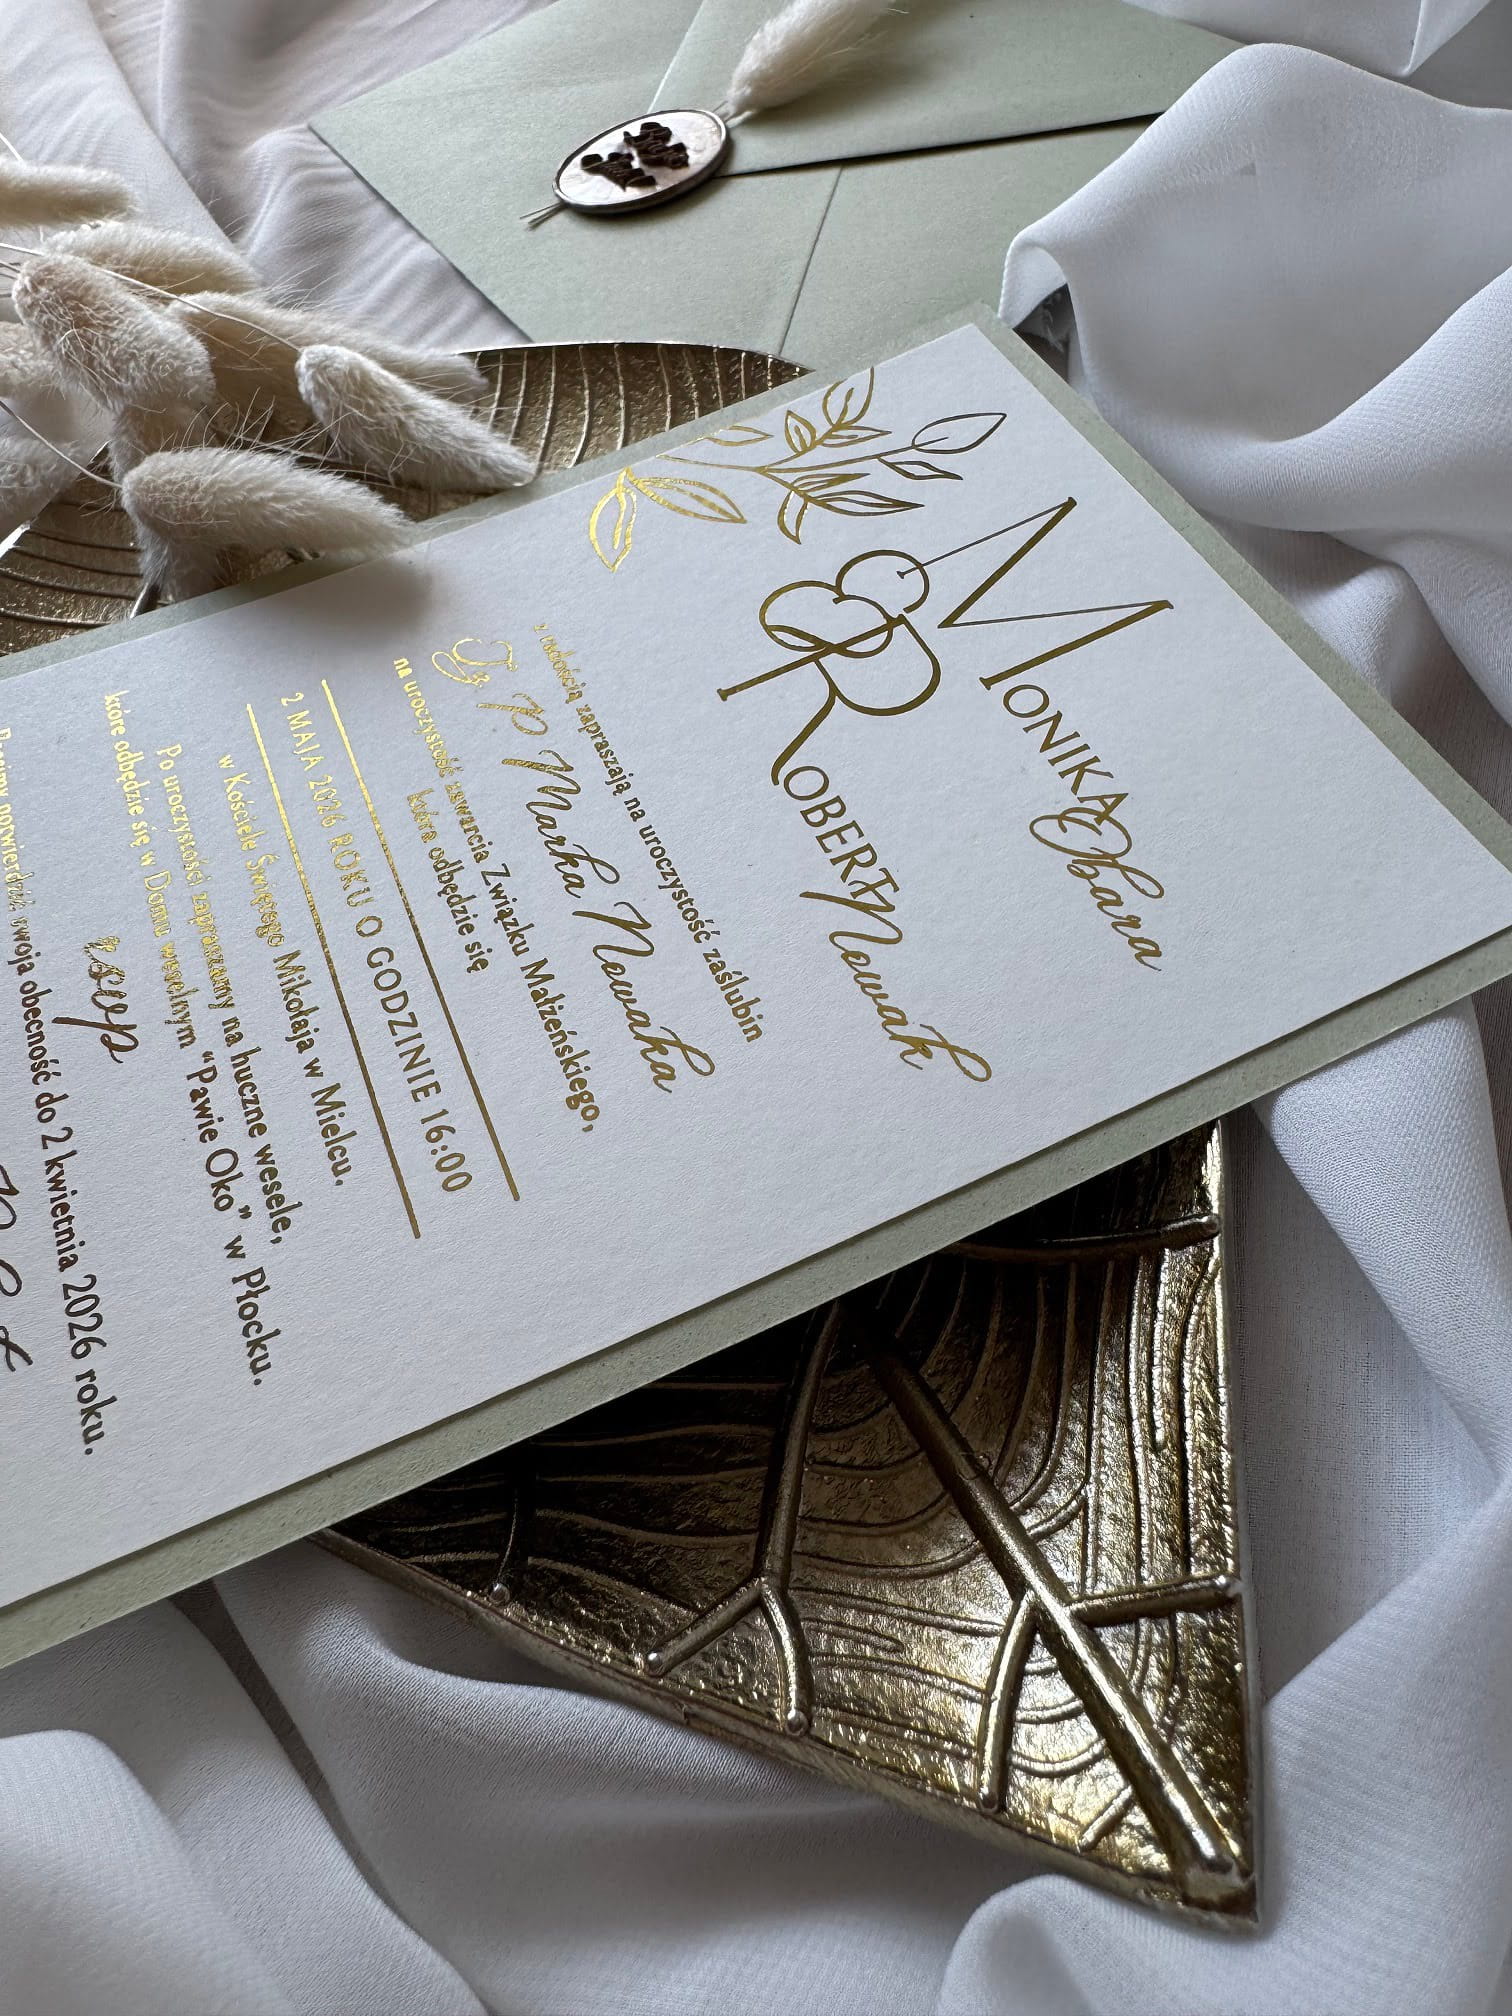 Monika Obara
&
Robert Nowak
z radością zapraszają na uroczystość zaślubin
Marka Nowaka
na uroczystość zawarcia Związku Małżeńskiego,
która odbędzie się
2 MAJA 2026 ROKU O GODZINIE 16:00
w Kościele Świętego Mikołaja w Mielcu.
Po uroczystości zapraszamy na huczne wesele,
które odbędzie się w Domu weselnym "Pawie Oko" w Płocku.
rsvp
Prosimy potwierdzić swoją obecność do 2 kwietnia 2026 roku.